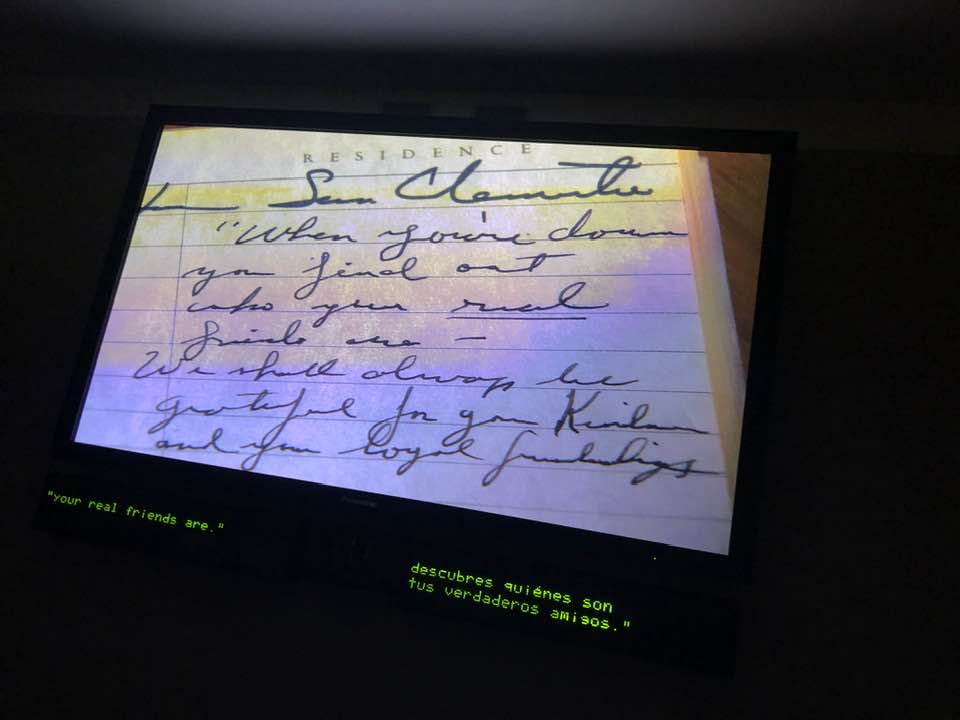 RESIDENCE
San Clemente
"When you're down
you find out
who your real
friends are —
We shall always be
grateful for your Kindness
and your loyal friendship
"your real friends are."
descubres quiénes son
tus verdaderos amigos."